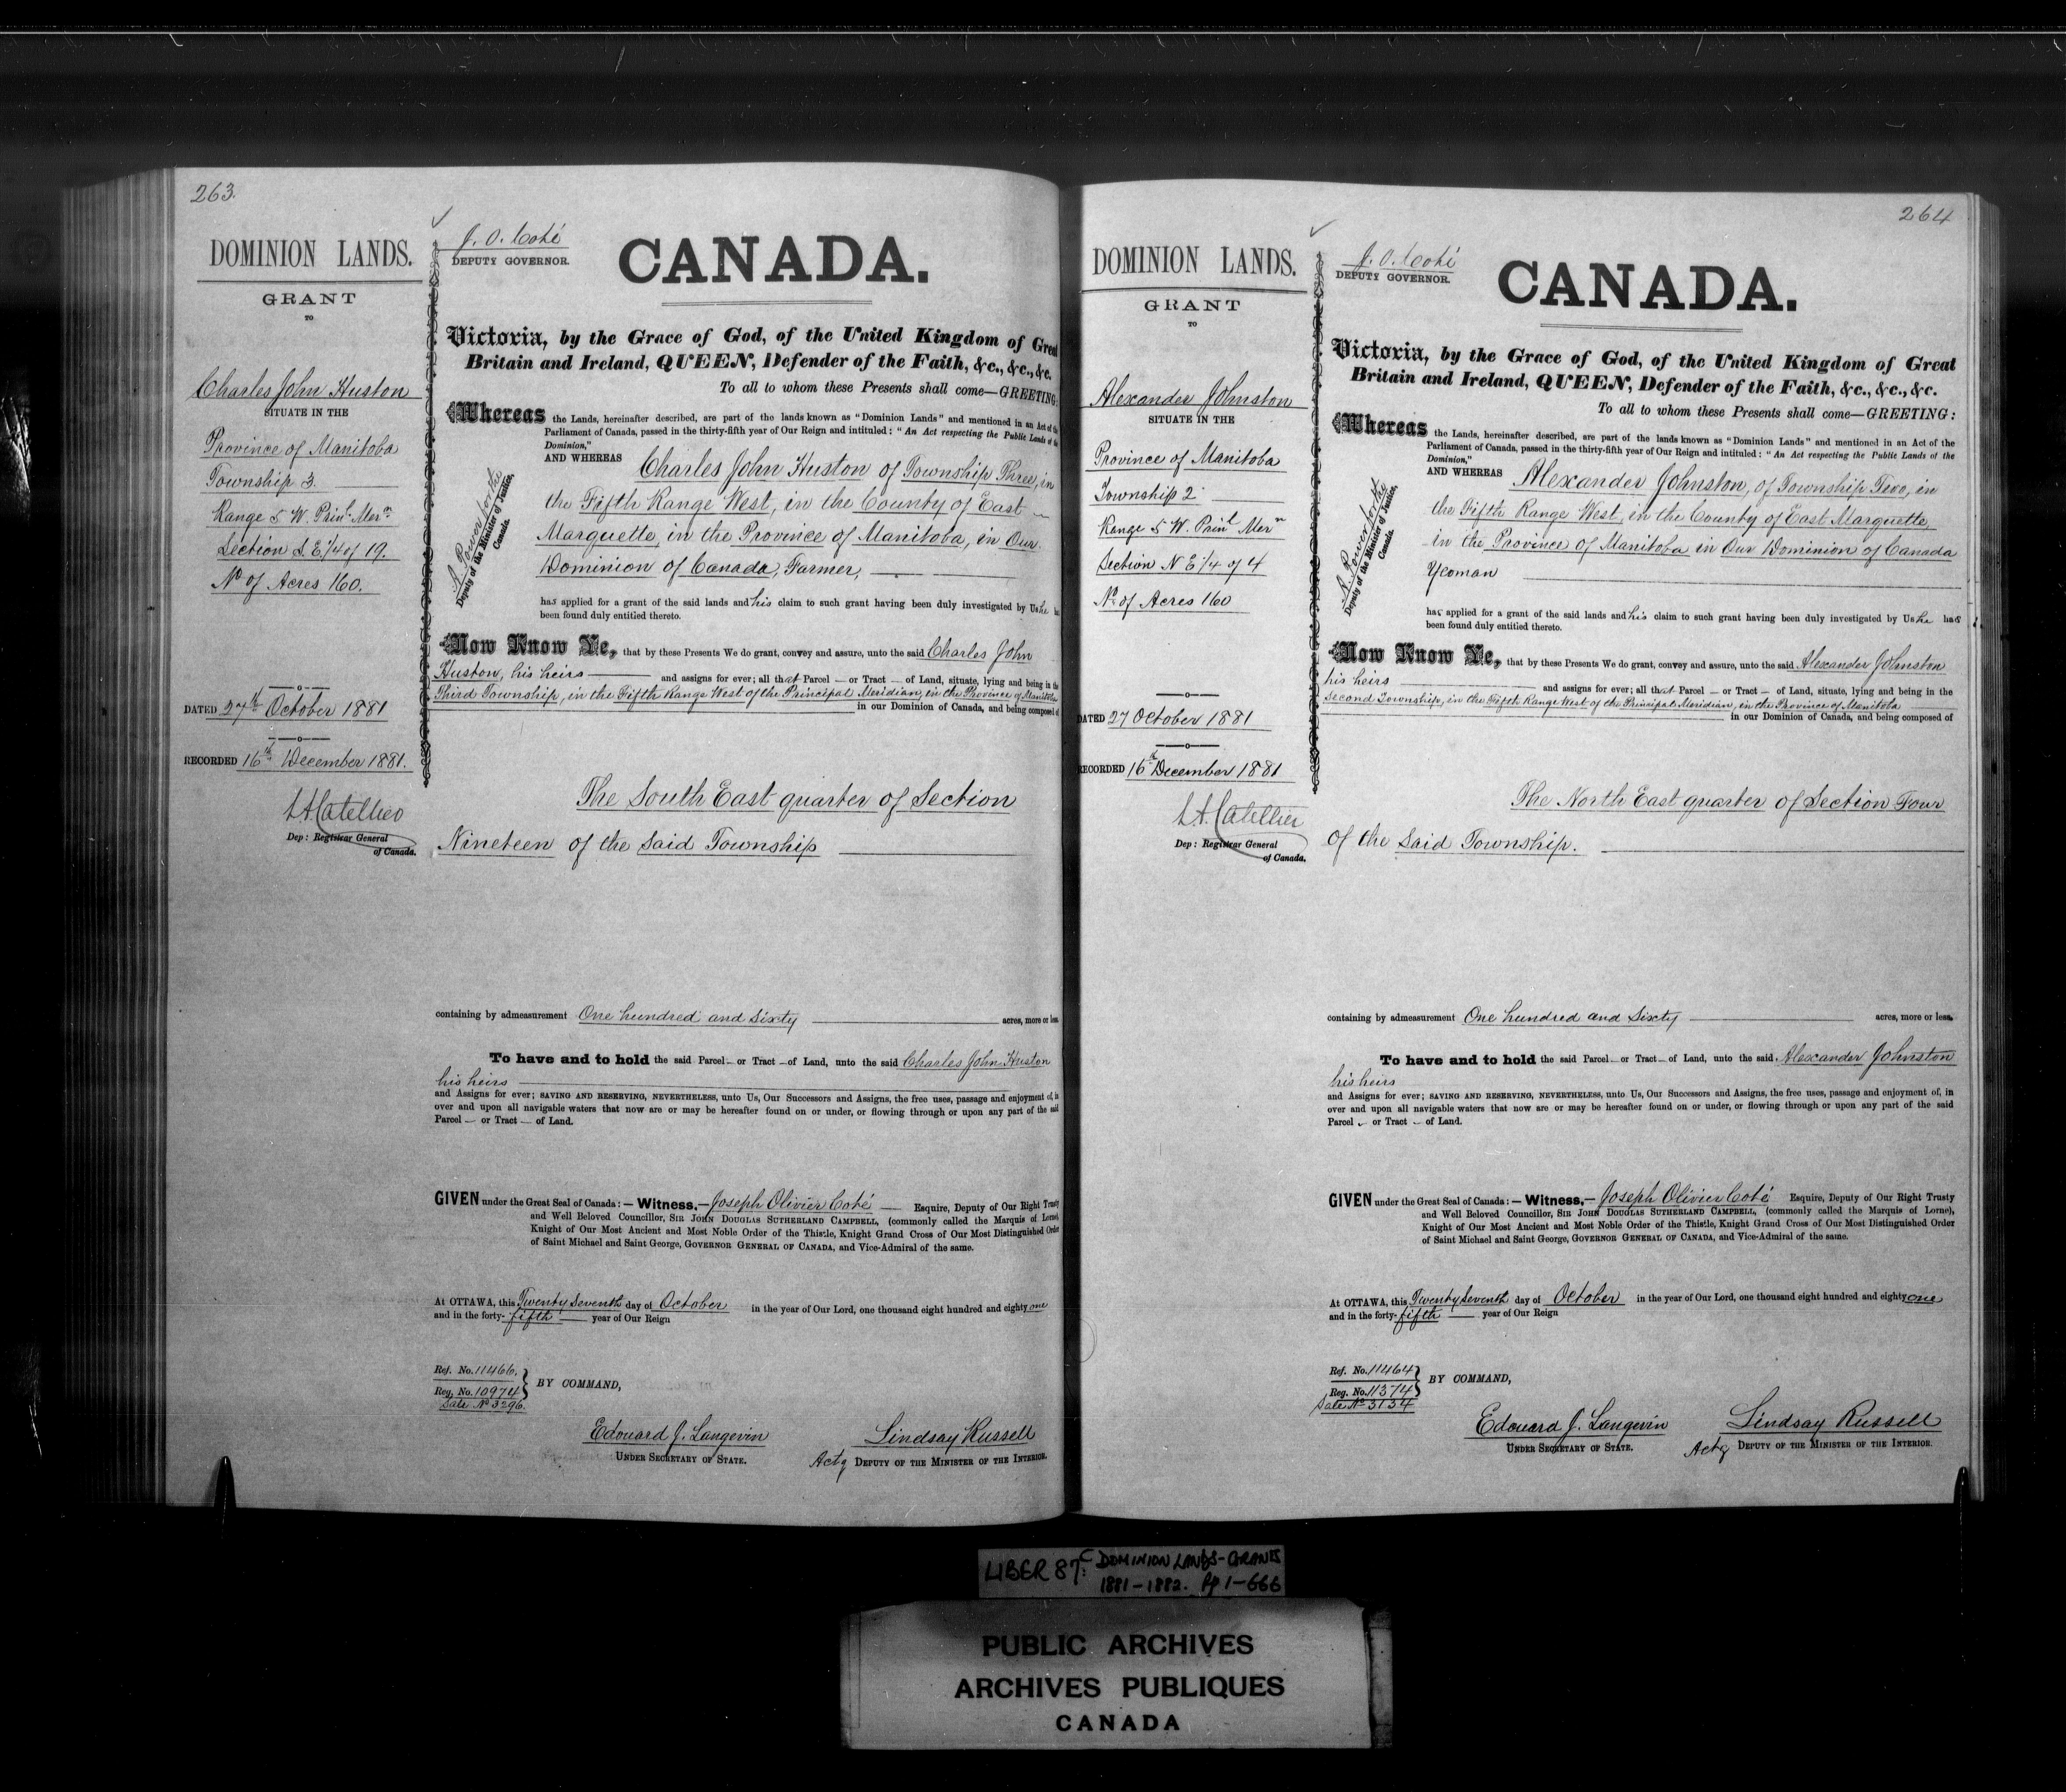 263.
DOMINION LANDS.
GRANT
TO
Charles John Huston
SITUATE IN THE
Province of Manitoba
Township 3
Range 5 W. Prinl. Mern
Section S. E. 1/4 of 19.
No of Acres 160.
DATED 27th October 1881
RECORDED 16th December 1881.
L. A. Catellier
Dep: Registrar General
of Canada.
J. O. Coté
DEPUTY GOVERNOR.
CANADA.
Victoria, by the Grace of God, of the United Kingdom of Great
Britain and Ireland, QUEEN, Defender of the Faith, &c., &c., &c.
To all to whom these Presents shall come—GREETING:
Whereas the Lands, hereinafter described, are part of the lands known as "Dominion Lands" and mentioned in an Act of the
Parliament of Canada, passed in the thirty-fifth year of Our Reign and intituled: "An Act respecting the Public Lands of the
Dominion,"
A. Power for the
Deputy of the Minister of Justice,
Canada.
AND WHEREAS Charles John Huston of Township Three, in
the Fifth Range West, in the County of East
Marquette, in the Province of Manitoba, in Our
Dominion of Canada, Farmer,
has applied for a grant of the said lands and his claim to such grant having been duly investigated by Us he has
been found duly entitled thereto.
Now Know Ye, that by these Presents We do grant, convey and assure, unto the said Charles John
Huston, his heirs and assigns for ever; all that Parcel — or Tract — of Land, situate, lying and being in the
Third Township, in the Fifth Range West of the Principal Meridian, in the Province of Manitoba
in our Dominion of Canada, and being composed of
The South East quarter of Section
Nineteen of the said Township
containing by admeasurement One hundred and Sixty acres, more or less.
To have and to hold the said Parcel — or Tract — of Land, unto the said Charles John Huston
his heirs
and Assigns for ever; SAVING AND RESERVING, NEVERTHELESS, unto Us, Our Successors and Assigns, the free uses, passage and enjoyment of, in
over and upon all navigable waters that now are or may be hereafter found on or under, or flowing through or upon any part of the said
Parcel — or Tract — of Land.
GIVEN under the Great Seal of Canada:— Witness,— Joseph Olivier Coté — Esquire, Deputy of Our Right Trusty
and Well Beloved Councillor, SIR JOHN DOUGLAS SUTHERLAND CAMPBELL, (commonly called the Marquis of Lorne),
Knight of Our Most Ancient and Most Noble Order of the Thistle, Knight Grand Cross of Our Most Distinguished Order
of Saint Michael and Saint George, GOVERNOR GENERAL OF CANADA, and Vice-Admiral of the same.
At OTTAWA, this Twenty Seventh day of October in the year of Our Lord, one thousand eight hundred and eighty one
and in the forty-fifth year of Our Reign
Ref. No. 11466.
Reg. No. 10974
Sale No 3296.
BY COMMAND,
Edouard J. Langevin
UNDER SECRETARY OF STATE.
Lindsay Russell
Actg DEPUTY OF THE MINISTER OF THE INTERIOR.
264
DOMINION LANDS.
GRANT
TO
Alexander Johnston
SITUATE IN THE
Province of Manitoba
Township 2
Range 5 W. Prinl Mern
Section N E 1/4 of 4
No of Acres 160
DATED 27 October 1881
RECORDED 16th December 1881
L. A. Catellier
Dep: Registrar General
of Canada.
J. O. Coté
DEPUTY GOVERNOR.
CANADA.
Victoria, by the Grace of God, of the United Kingdom of Great
Britain and Ireland, QUEEN, Defender of the Faith, &c., &c., &c.
To all to whom these Presents shall come—GREETING:
Whereas the Lands, hereinafter described, are part of the lands known as "Dominion Lands" and mentioned in an Act of the
Parliament of Canada, passed in the thirty-fifth year of Our Reign and intituled: "An Act respecting the Public Lands of the
Dominion,"
A. Power for the
Deputy of the Minister of Justice,
Canada.
AND WHEREAS Alexander Johnston, of Township Two, in
the Fifth Range West, in the County of East Marquette
in the Province of Manitoba in Our Dominion of Canada
Yeoman
has applied for a grant of the said lands and his claim to such grant having been duly investigated by Us he has
been found duly entitled thereto.
Now Know Ye, that by these Presents We do grant, convey and assure, unto the said Alexander Johnston
his heirs and assigns for ever; all that Parcel — or Tract — of Land, situate, lying and being in the
Second Township, in the Fifth Range West of the Principal Meridian, in the Province of Manitoba
in our Dominion of Canada, and being composed of
The North East quarter of Section Four
of the said Township.
containing by admeasurement One hundred and Sixty acres, more or less.
To have and to hold the said Parcel — or Tract — of Land, unto the said Alexander Johnston
his heirs
and Assigns for ever; SAVING AND RESERVING, NEVERTHELESS, unto Us, Our Successors and Assigns, the free uses, passage and enjoyment of, in
over and upon all navigable waters that now are or may be hereafter found on or under, or flowing through or upon any part of the said
Parcel — or Tract — of Land.
GIVEN under the Great Seal of Canada:— Witness,— Joseph Olivier Coté Esquire, Deputy of Our Right Trusty
and Well Beloved Councillor, SIR JOHN DOUGLAS SUTHERLAND CAMPBELL, (commonly called the Marquis of Lorne),
Knight of Our Most Ancient and Most Noble Order of the Thistle, Knight Grand Cross of Our Most Distinguished Order
of Saint Michael and Saint George, GOVERNOR GENERAL OF CANADA, and Vice-Admiral of the same.
At OTTAWA, this Twenty Seventh day of October in the year of Our Lord, one thousand eight hundred and eighty one
and in the forty-fifth year of Our Reign
Ref. No. 11464
Reg. No. 11374
Sale No 3134
BY COMMAND,
Edouard J. Langevin
UNDER SECRETARY OF STATE.
Lindsay Russell
Actg DEPUTY OF THE MINISTER OF THE INTERIOR.
LIBER 87C: DOMINION LANDS-GRANTS
1881-1882. Pp 1-666
PUBLIC ARCHIVES
ARCHIVES PUBLIQUES
CANADA